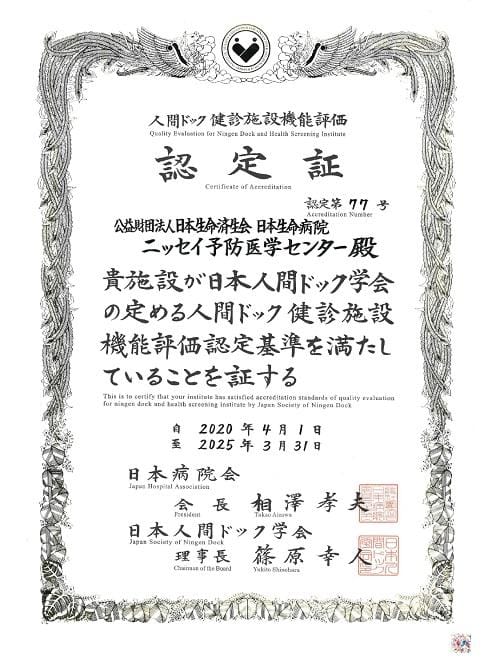 人間ドック 健診施設機能評価
Quality Evaluation for Ningen Dock and Health Screening Institute
認定証
Certificate of Accreditation
認定第 77 号
Accreditation Number
公益財団法人日本生命済生会 日本生命病院
ニッセイ予防医学センター殿
貴施設が日本人間ドック学会
の定める人間ドック 健診施設
機能評価認定基準を満たし
ていることを証する
This is to certify that your institute has satisfied accreditation standards of quality evaluation
for ningen dock and health screening institute by Japan Society of Ningen Dock
自 2020 年 4 月 1 日
至 2025 年 3 月 31 日
日本病院会
Japan Hospital Association
会長 相澤孝夫
President Takao Aizawa
日本人間ドック学会
Japan Society of Ningen Dock
理事長 篠原幸人
Chairman of the Board Yukito Shinohara